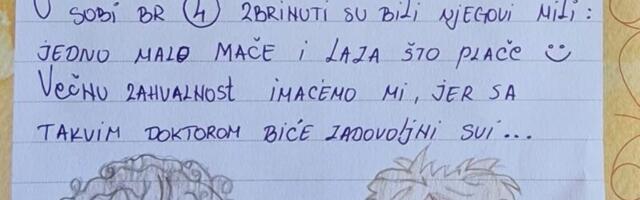 U SOBI BR 4 ZBRINUTI SU BILI NJEGOVI MILI :
JEDNO MALO MAČE I LAZA ŠTO PLAČE
VEČNU ZAHVALNOST IMAĆEMO MI, JER SA
TAKVIM DOKTOROM BIĆE ZADOVOLJNI SVI...